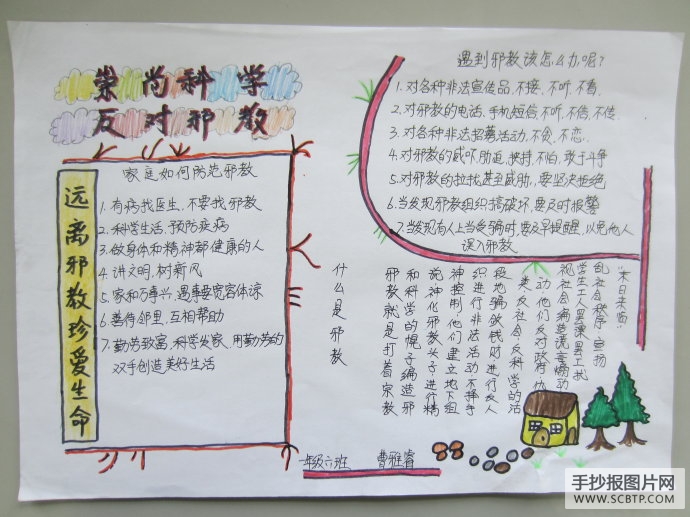 崇尚科学
反对邪教
远离邪教珍爱生命
家庭如何防范邪教
1.有病找医生,不要找邪教
2.科学生活,预防疾病
3.做身体和精神都健康的人
4.讲文明,树新风
5.家和万事兴,遇事要宽容体谅
6.善待邻里,互相帮助
7.勤劳致富,科学发家,用勤劳的
双手创造美好生活
遇到邪教该怎么办呢?
1.对各种非法宣传品,不接、不听、不看.
2.对邪教的电话、手机短信不听、不信、不传.
3.对各种非法招募活动,不贪、不恋.
4.对邪教的威吓、胁迫、挟持不怕,敢于斗争
5.对邪教的拉拢甚至威胁,要坚决拒绝
6.当发现邪教组织搞破坏,要及时报警
7.当发现有人上当受骗时,要及早提醒,以免他人
误入邪教.
什么是邪教
邪教就是打着宗教
和科学的幌子编造邪
说神化邪教头子进行精
神控制他们建立地下组
织进行非法活动不择手
段地骗敛钱财进行反人
类反社会反科学的活
动他们反对政府仇
视社会捏造谎言煽动
学生工人罢课罢工扰
乱社会秩序宣扬
“末日来临”
一年级六班 曹雅睿
手抄报图片网
WWW.SCBTP.COM